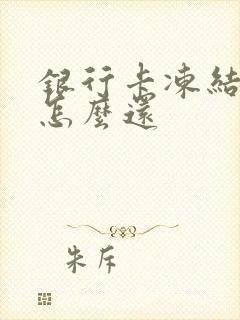 銀行卡凍結
怎麼還
朱斥